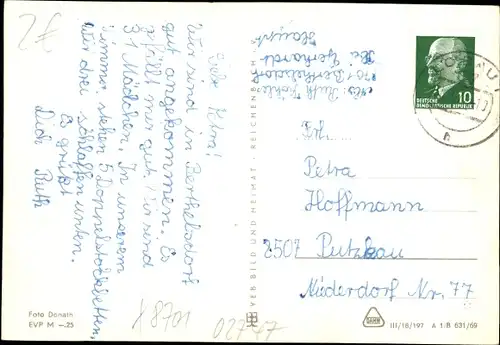 2€
Liebe Petra!
Wir sind in Berthelsdorf
gut angekommen. Es
gefällt mir gut. Wir sind
31 Mädchen. In unserem
Zimmer stehen 5 Doppelstockbetten,
wir drei schlaffen unten.
Es grüßt
Dich Ruth
Foto Donath
EVP M –.25
X 8701
02747
VEB BILD UND HEIMAT · REICHENBACH I. V.
Abs. Ruth
8701 Berthelsdorf
10
DEUTSCHE
DEMOKRATISCHE REPUBLIK
Frl.
Petra
Hoffmann
8507 Putzkau
Niederdorf Nr. 77
III/18/197 A 1/B 631/69